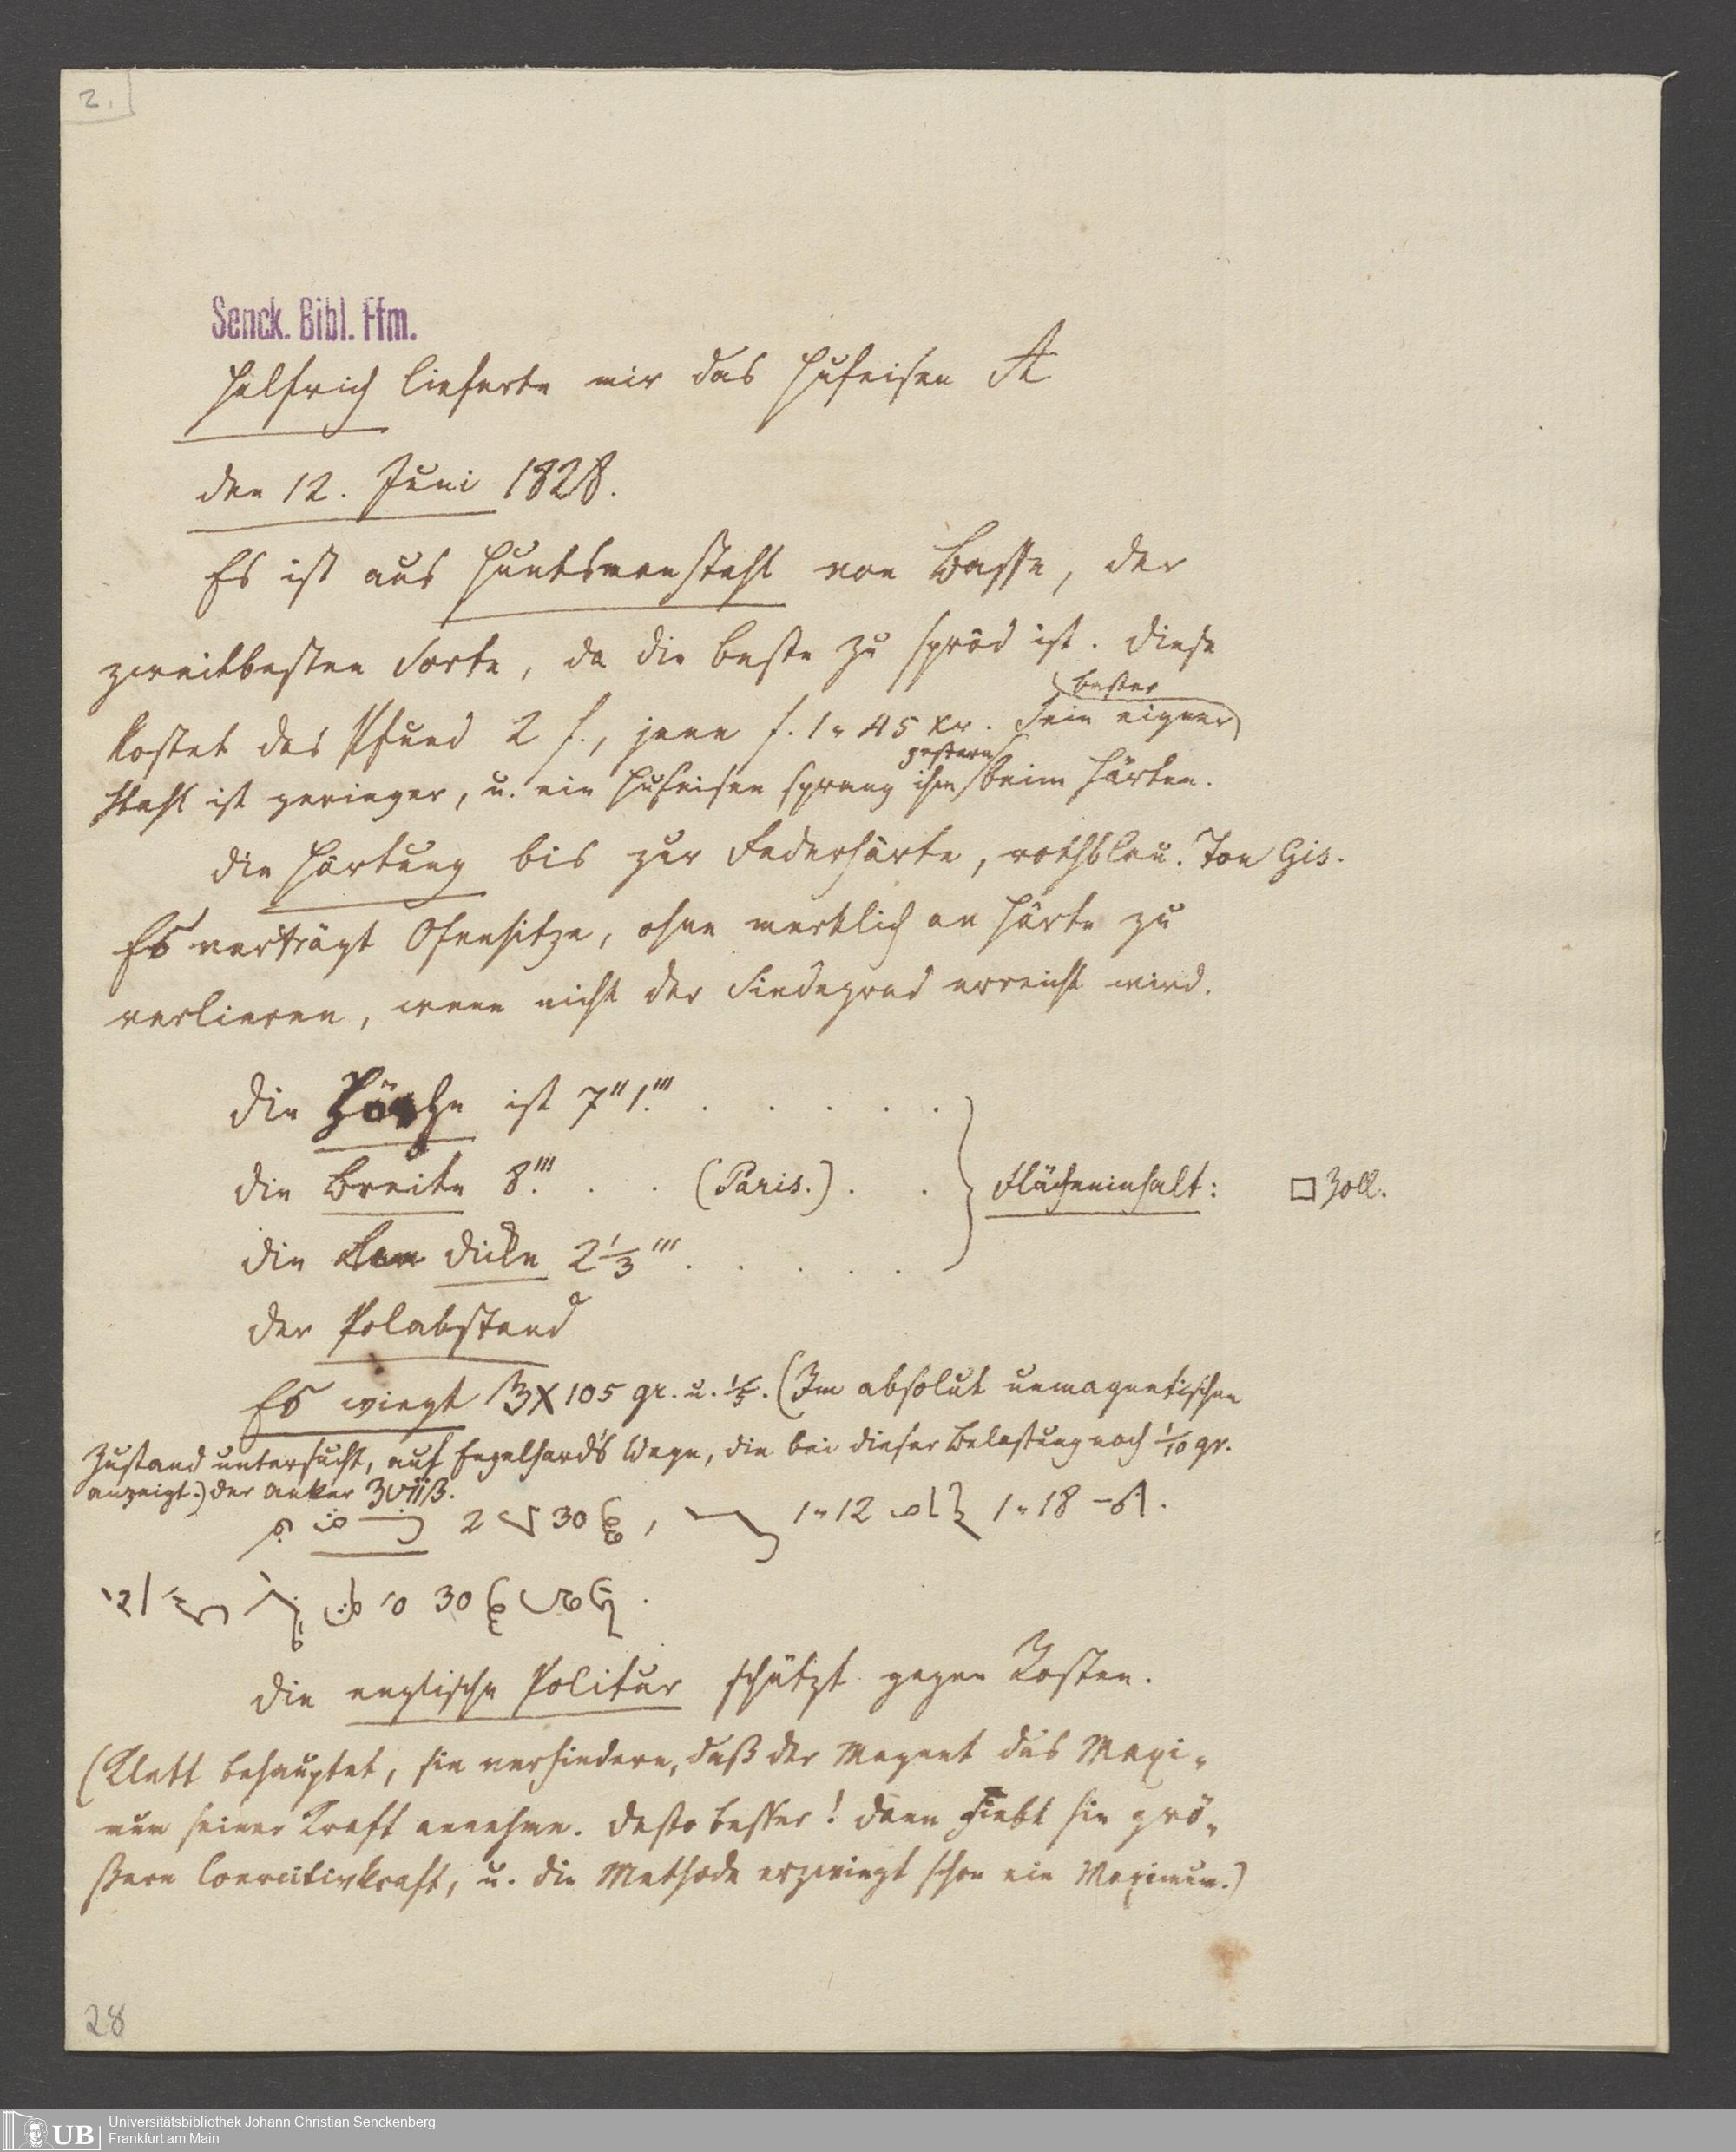 2.
Senck. Bibl. Ffm.
Helfrich lieferte mir das Hufeisen A
den 12. Juni 1828.
Es ist aus Huntsmanstahl von Basse, der
zweitbesten Sorte, da die beste zu spröd ist. Diese
kostet das Pfund 2 f., jene f. 1 " 45 Xr. Sein eigner
bester
Stahl ist geringer, u. ein Hufeisen sprang ihm beim Härten.
gestern
Die Härtung bis zur Federhärte, rothblau. Ton Gis.
Es verträgt Ofenhitze, ohne merklich an Härte zu
verlieren, wenn nicht der Siedegrad erreicht wird.
Die Höhe ist 7'' 1.''' . . . . .
Die Breite 8.''' . . (Paris.) . . Flächeninhalt: □ Zoll.
Die Dicke 2 1/3 ''' . . . . .
Der Polabstand
Es wiegt 105 gr. u. 1/5. (Im absolut unmagnetischen
Zustand untersucht, auf Engelhard's Wage, die bei dieser Belastung noch 1/10 gr.
anzeigt.) Der Anker
2 30 , 1 " 12 1 " 18
30
Die englische Politur schützt gegen Rosten.
(Klett behauptet, sie verhindere, daß der Magnet das Maxi-
mum seiner Kraft annehme. Desto besser! Dann giebt sie grö-
ßere Coercitivkraft, u. die Methode erzwingt schon ein Maximum.)
28
UB Universitätsbibliothek Johann Christian Senckenberg
Frankfurt am Main